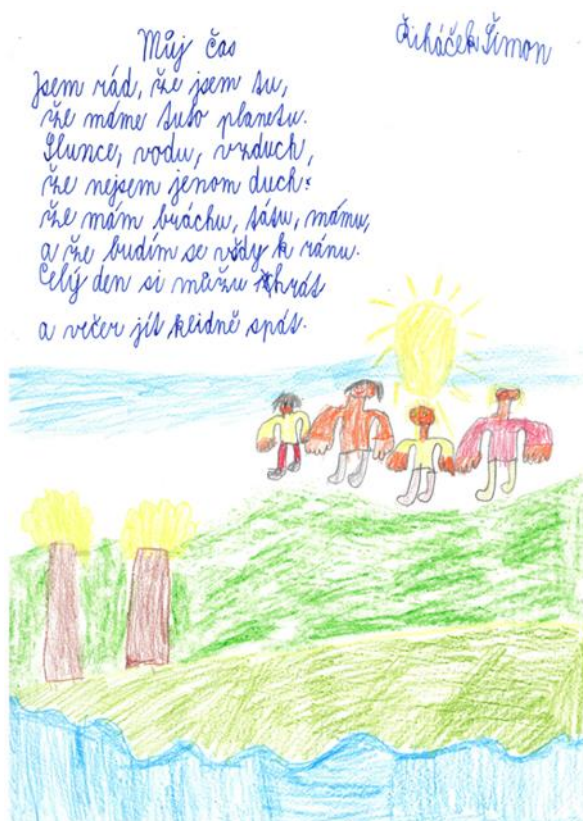 Můj čas
Řiháček Šimon
Jsem rád, že jsem tu,
že máme tuto planetu.
Slunce, vodu, vzduch,
že nejsem jenom duch:
že mám bráchu, tátu, mámu,
a že budím se vždy k ránu.
Celý den si můžu hrát
a večer jít klidně spát.